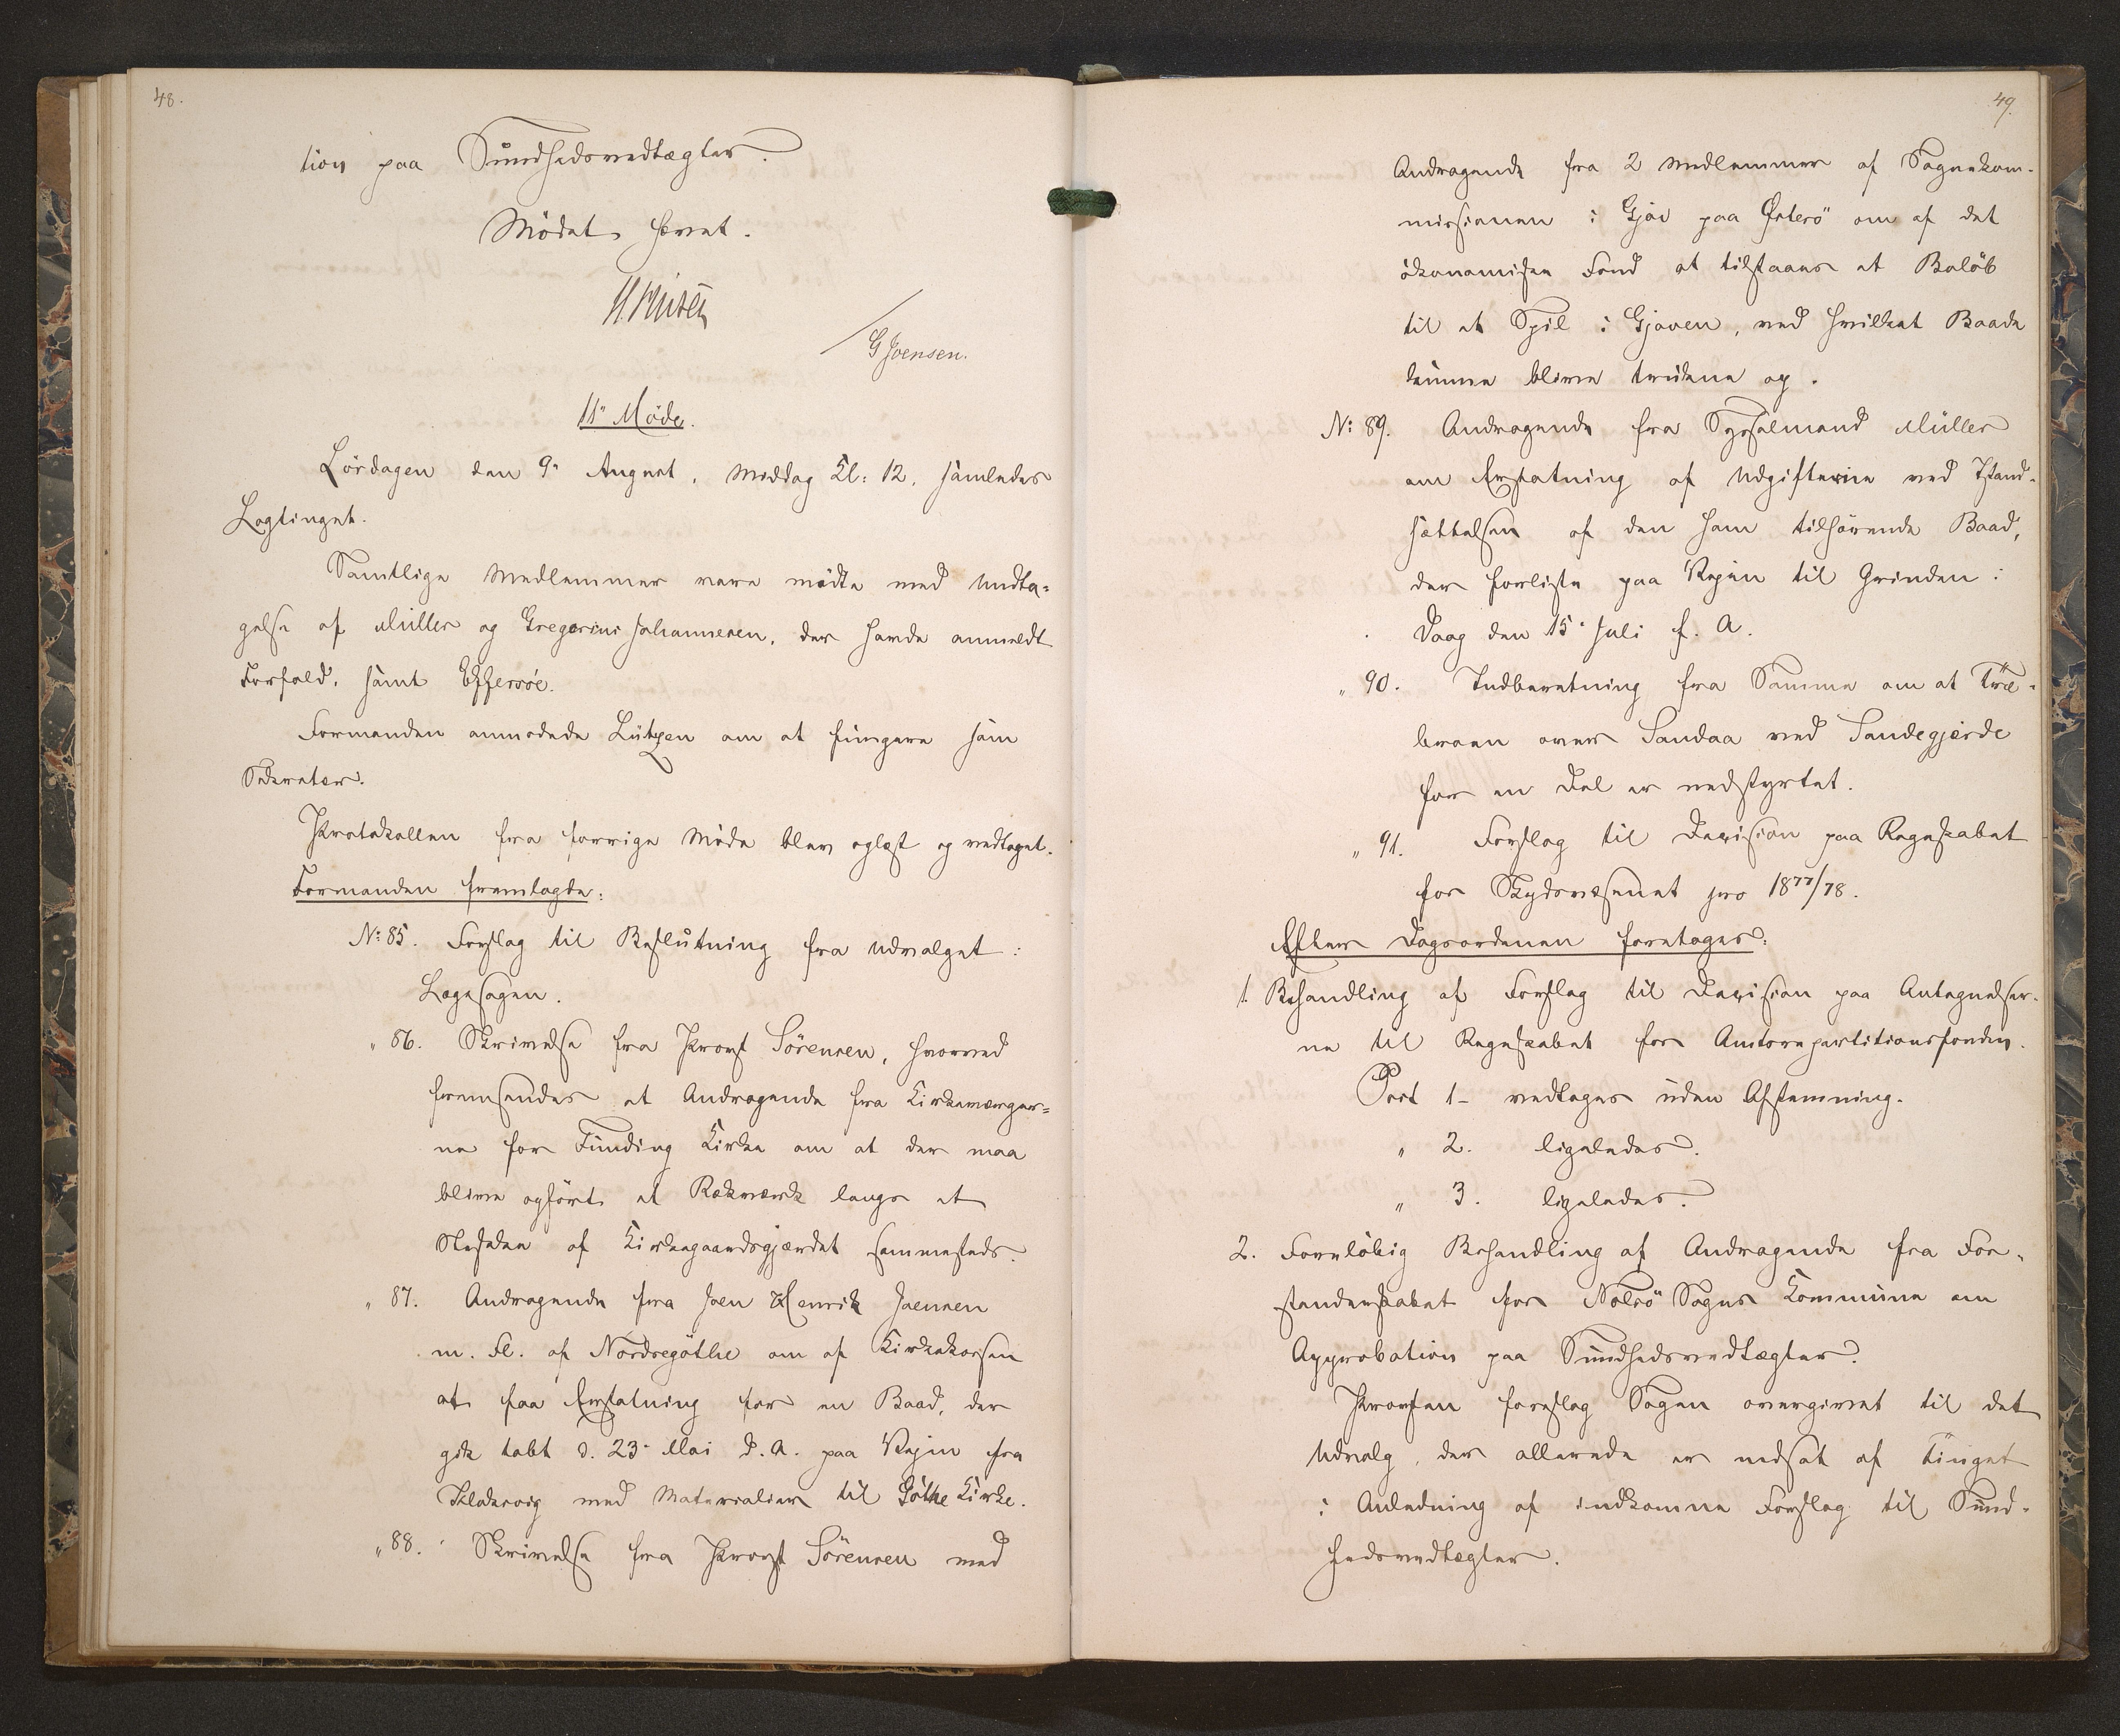 48.
tion paa Sundhedsvedtægter.
Mödet hævet.
G Joensen.
11te Möde.
Lördagen den 9de August, Middag Kl: 12, samledes
Lagtinget.
Samtlige Medlemmer vare mödte med Undta-
gelse af Müller og Gregorius Johannesen, der havde anmeldt
Forfald, samt Effersöe.
Formanden anmodede Lützen om at fungere som
Sekretær.
Protokollen fra forrige Möde blev oplæst og vedtaget.
Formanden fremlagde:
No: 85. Forslag til Beslutning fra Udvalget i
Lagesagen.
" 86. Skrivelse fra Provst Sörensen, hvorved
fremsendes et Andragende fra Kirkeværger-
ne for Funding Kirke om at der maa
blive opfört et Rækværk langs et
Stykke af Kirkegaardsgjærdet sammesteds.
" 87. Andragende fra Joen Henrik Joensen
m. Fl. af Nordregöthe om af Kirkekassen
at faa Erstatning for en Baad, der
gik tabt d. 23de Mai d. A. paa Vejen fra
Klaksvig med Materialier til Göthe Kirke.
" 88. Skrivelse fra Provst Sörensen med
49.
Andragende fra 2 Medlemmer af Sognekom-
missionen i Gjov paa Österö om af det
ökonomiske Fond at tilstaaes et Belöb
til et Spil i Gjoven, ved hvilket Baade
kunne blive trukne op.
No: 89. Andragende fra Sysselmand Müller
om Erstatning af Udgifterne ved Istand-
sættelsen af den ham tilhörende Baad,
der forliste paa Vejen til Grinden i
Vaag den 15de Juli f. A.
" 90. Indberetning fra Samme om at Træ-
broen over Sandaa ved Sandegjerde
for en Del er nedstyrtet.
" 91. Forslag til Decision paa Regnskabet
for Skydsvæsenet pro 1877/78.
Efter Dagsordenen foretoges:
1. Behandling af Forslag til Decision paa Antegnelser-
ne til Regnskabet for Amtsrepartitionsfonden.
Post 1 - vedtages uden Afstemning.
" 2. ligeledes.
" 3. ligeledes.
2. Foreløbig Behandling af Andragende fra For-
standerskabet for Nolsö Sogns Kommune om
Approbation paa Sundhedsvedtægter.
Provsten foreslog Sagen overgivet til det
Udvalg, der allerede er nedsat af Tinget
i Anledning af indkomne Forslag til Sund-
hedsvedtægter.